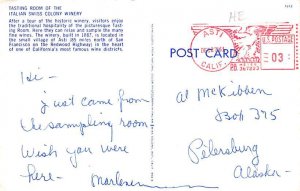 TASTING ROOM OF THE
ITALIAN SWISS COLONY WINERY
After a tour of the historic winery, visitors enjoy
the traditional hospitality of the picturesque Tast-
ing Room. Here they can relax and sample the many
fine wines. The winery, built in 1887, is located in
the small village of Asti (85 miles north of San
Francisco on the Redwood Highway) in the heart
of one of California's most famous wine districts.
AE
ASTI
CALIF.
U.S. POSTAGE
03
POST CARD
Hi -
Just came from
the sampling room-
Wish you were
here-
Marlene
Al McKibben
Box 375
Petersburg
Alaska-